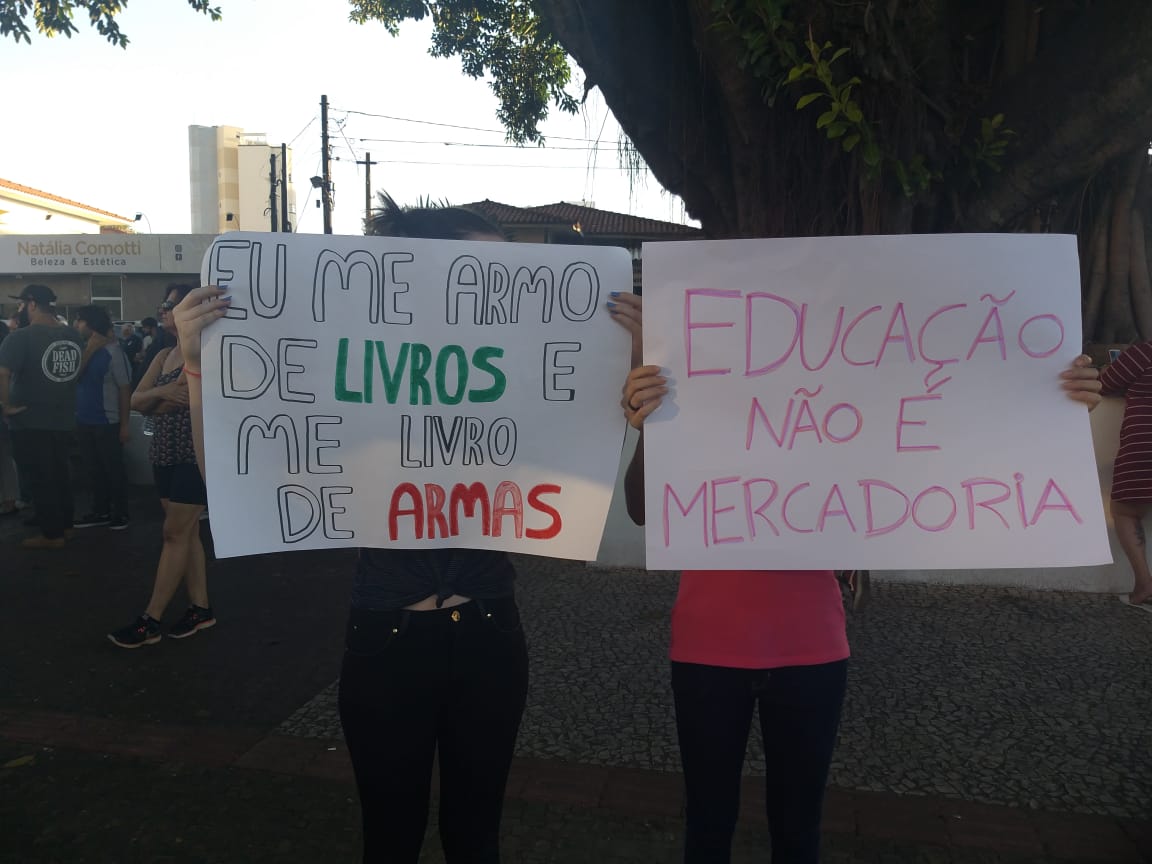 Natália Comotti
Beleza & Estética
DEAD
FISH
EU ME ARMO
DE LIVROS E
ME LIVRO
DE ARMAS
EDUCAÇÃO
NÃO É
MERCADORIA